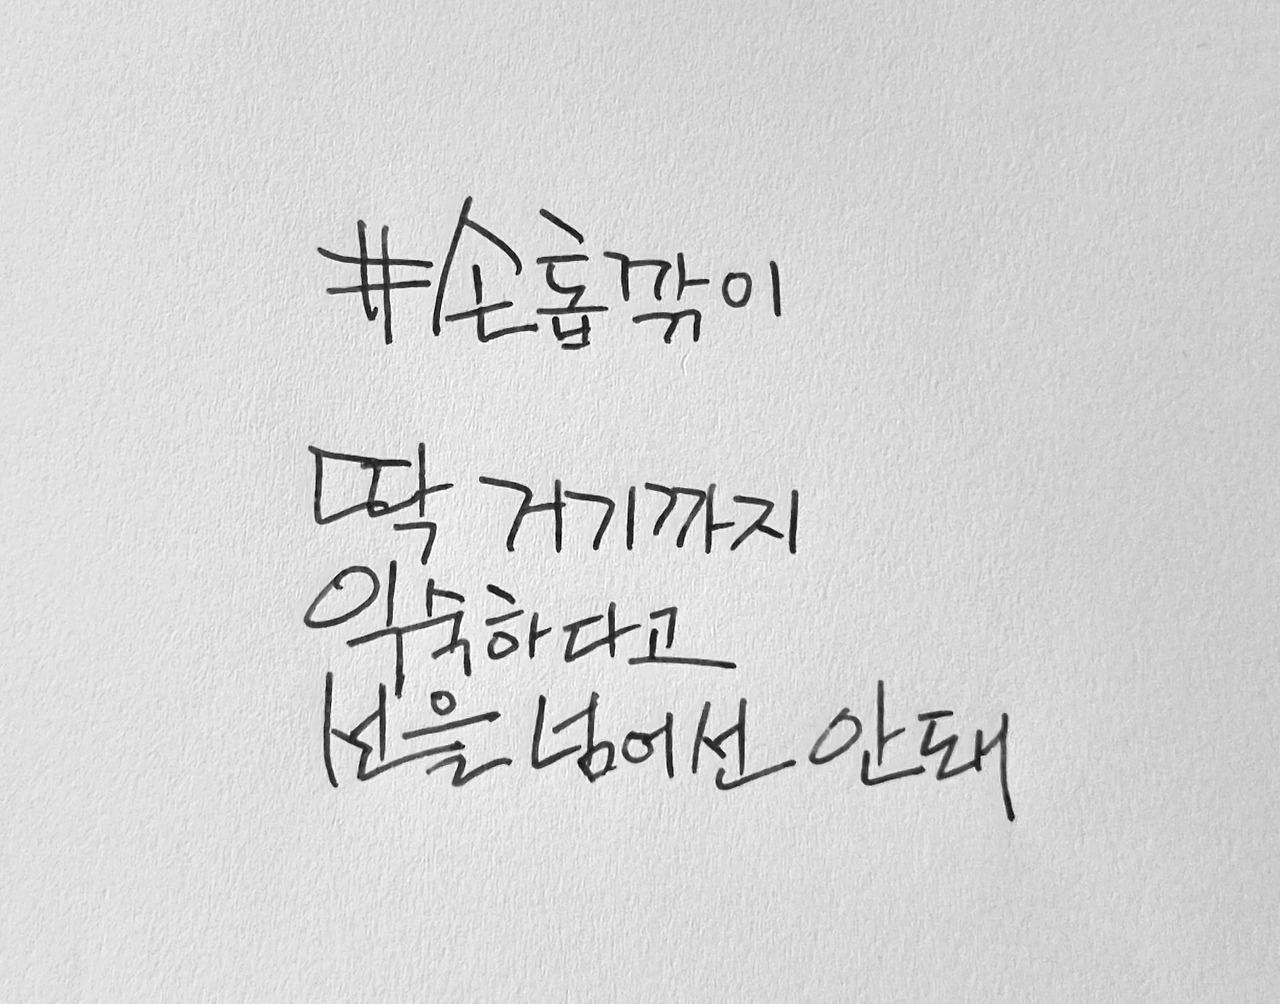 #손톱깎이
딱 거기까지
익숙하다고
선을 넘어선 안돼